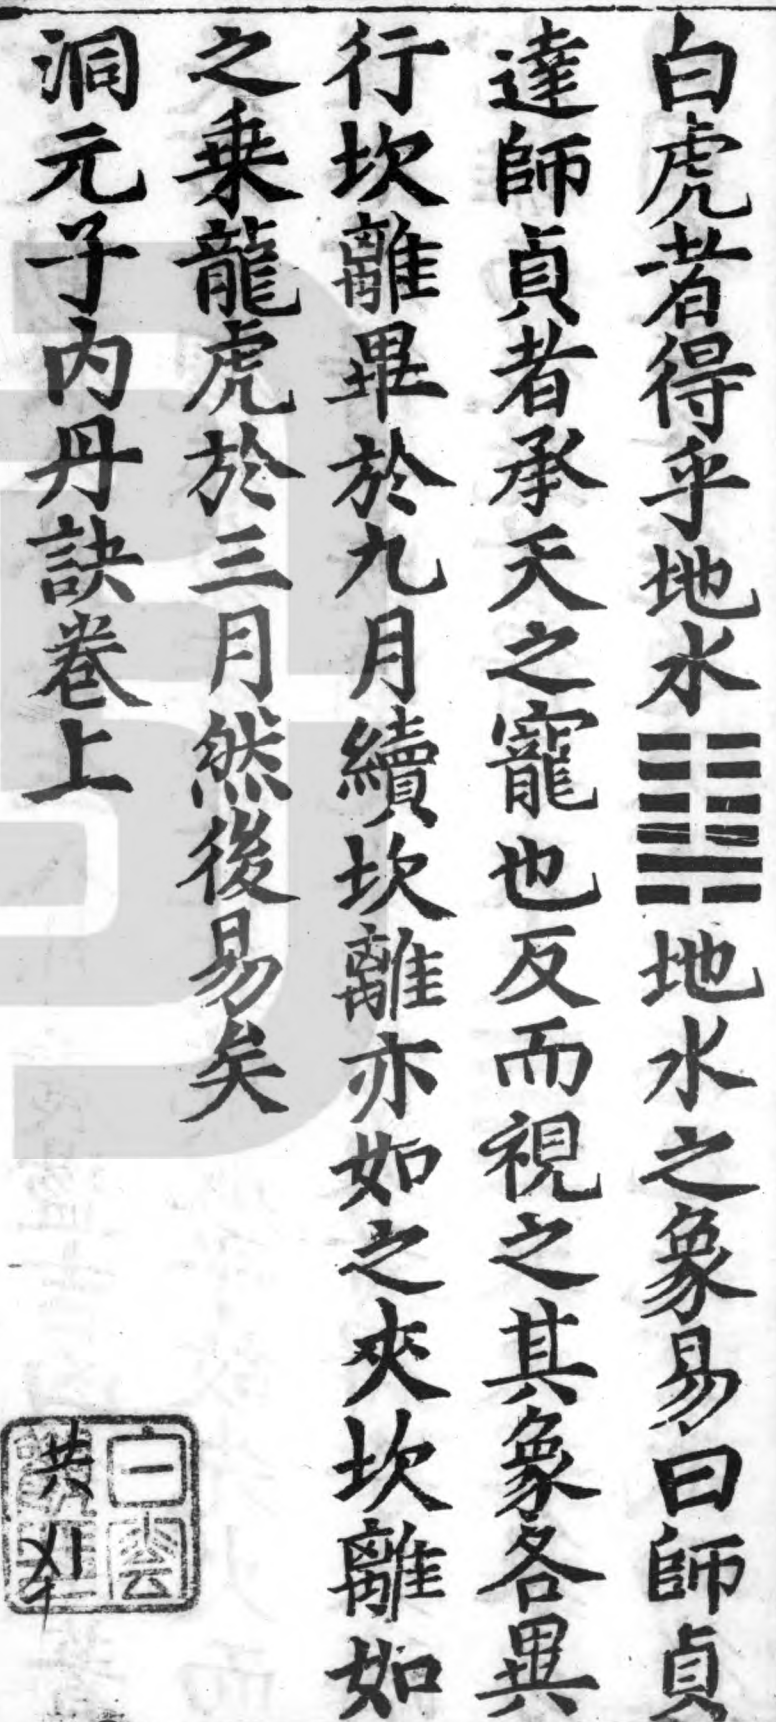 白虎者得乎地水䷆地水之象易曰師貞
達師貞者承天之寵也反而視之其象各異
行坎離畢於九月續坎離亦如之夾坎離如
之乗龍虎於三月然後易矣
洞元子内丹訣卷上
白雲